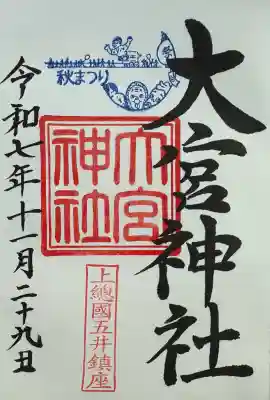 大宮神社
秋まつり
大宮
神社
上總國五井鎮座
令和七年十一月二十九日